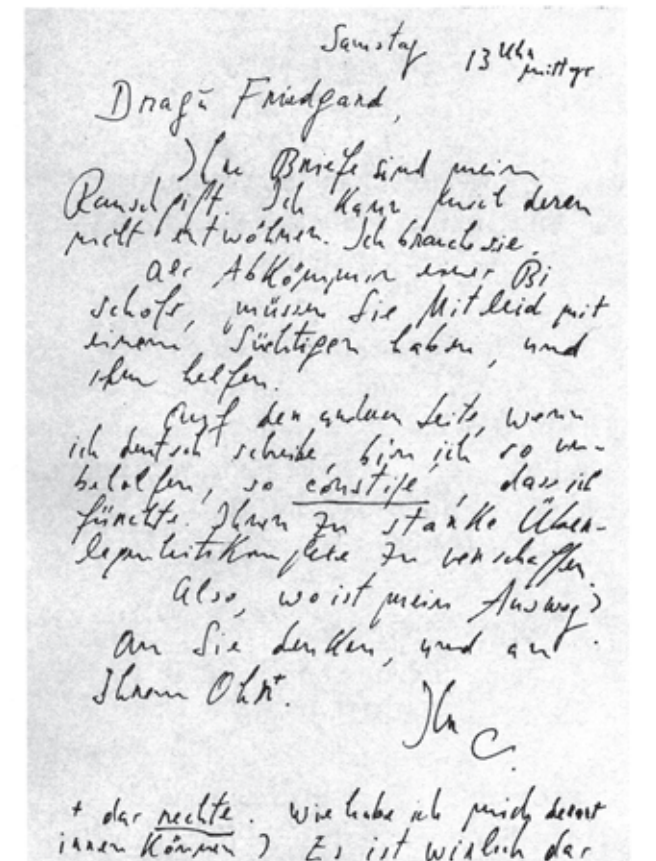 Samstag 13 Uhr mittags
Dragă Friedgard,
Ihre Briefe sind mein
Rauschgift. Ich kann mich deren
nicht entwöhnen. Ich brauche sie.
Als Abkömmin einer Bi
schofs, müssen Sie Mitleid mit
einem Süchtigen haben, und
ihm helfen.
Auf der anderen Seite, wenn
ich deutsch schreibe, bin ich so un-
beholfen, so constipé, dass ich
fürchte Ihnen zu starke Über-
legenheitskomplexe zu verschaffen.
Also, wo ist mein Ausweg?
An Sie denken, und an
Ihrem Ohr+.
Ihr C.
+ das rechte. Wie habe ich mich derart
irren können? Es ist wirklich das